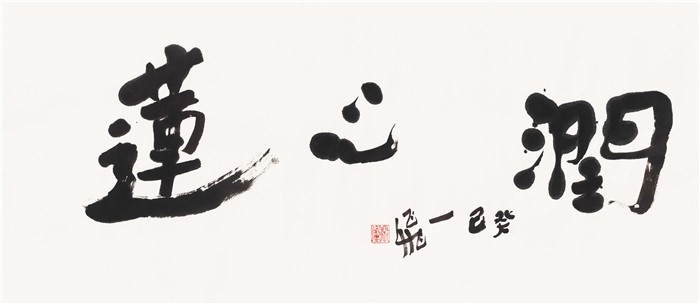 潤心蓮
癸巳一